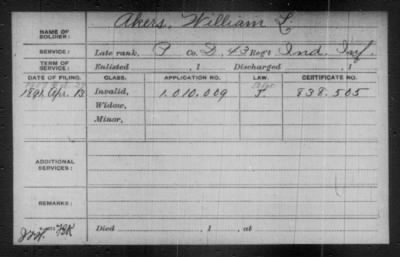 NAME OF SOLDIER: Akers, William L.
SERVICE: Late rank, P Co. D, 43 Reg't Ind. Inf.
TERM OF SERVICE: Enlisted , 1 Discharged , 1
DATE OF FILING. CLASS. APPLICATION NO. LAW. CERTIFICATE NO.
1891 Apr. 13 Invalid, 1.010.009 J. 838.505
Widow,
Minor,
ADDITIONAL SERVICES:
REMARKS:
Died , 1 , at